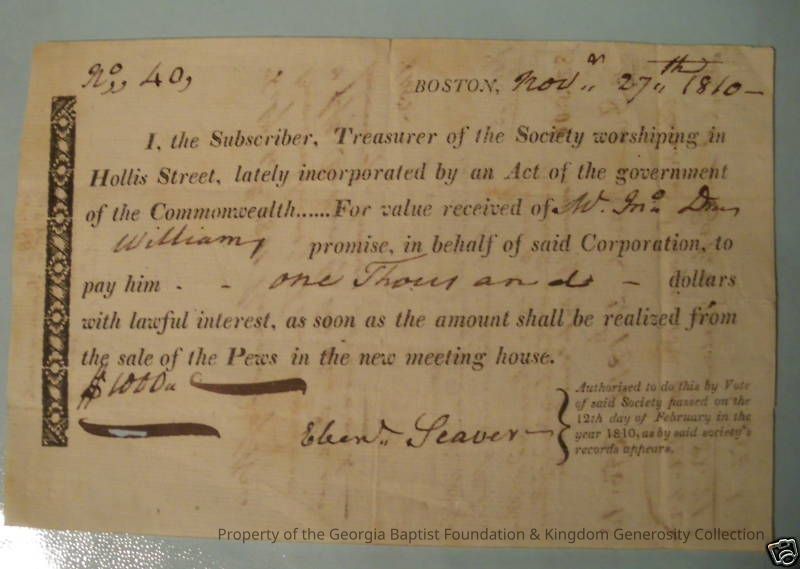 No. 40,
BOSTON, Novr. 27th 1810 —
I, the Subscriber, Treasurer of the Society worshiping in
Hollis Street, lately incorporated by an Act of the government
of the Commonwealth......For value received of Mr. Jno. Davs
Williams promise, in behalf of said Corporation, to
pay him - - one Thousand - dollars
with lawful interest, as soon as the amount shall be realized from
the sale of the Pews in the new meeting house.
$1000
Ebenr. Seaver
Authorised to do this by Vote
of said Society passed on the
12th day of February in the
year 1810, as by said society's
records appears.
Property of the Georgia Baptist Foundation & Kingdom Generosity Collection